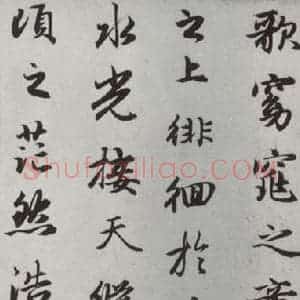 歌窈窕之章
之上徘徊於
水光接天縱
頃之茫然浩
Shufaziliao.com